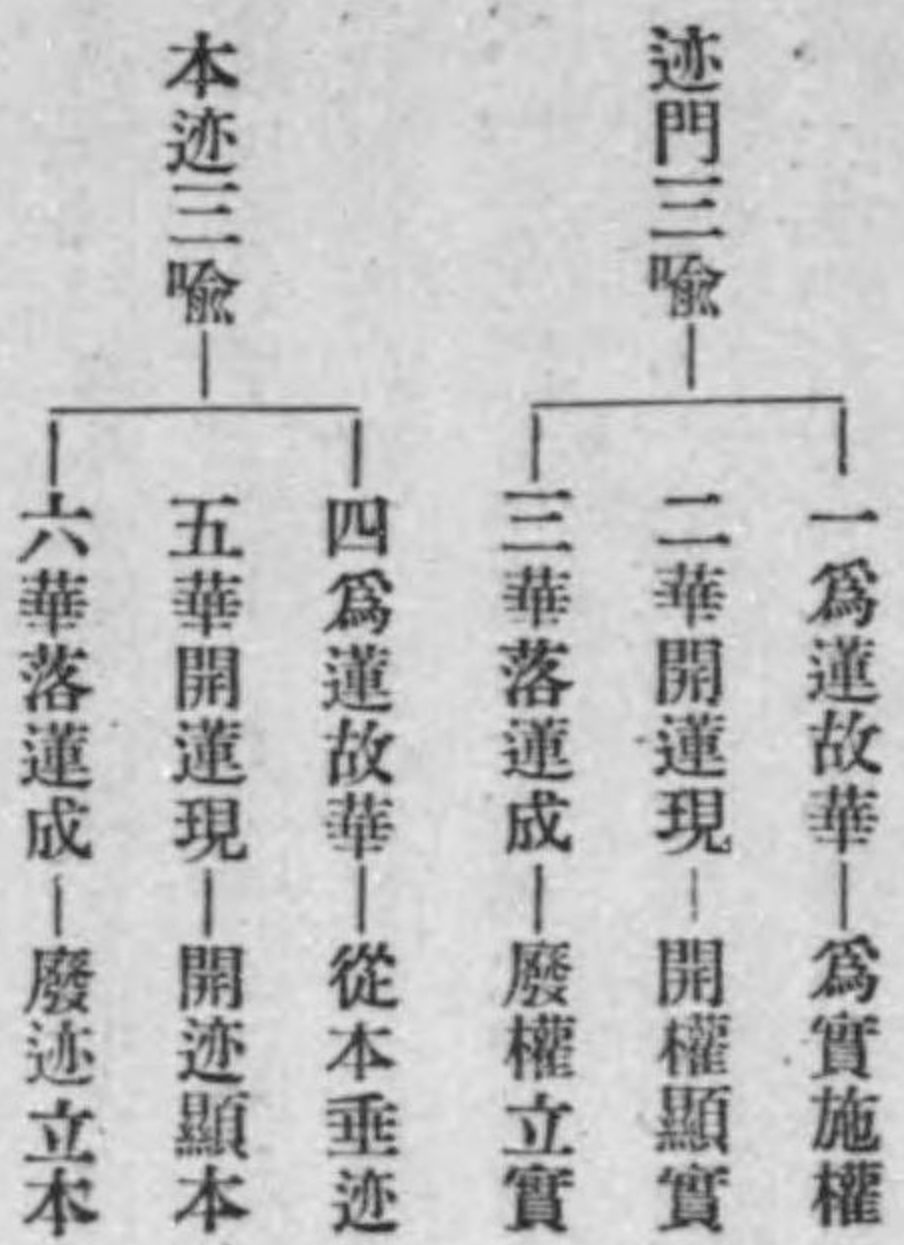 迹門三喩
一爲蓮故華—爲實施權
二華開蓮現—開權顯實
三華落蓮成—廢權立實
本迹三喩
四爲蓮故華—從本垂迹
五華開蓮現—開迹顯本
六華落蓮成—廢迹立本